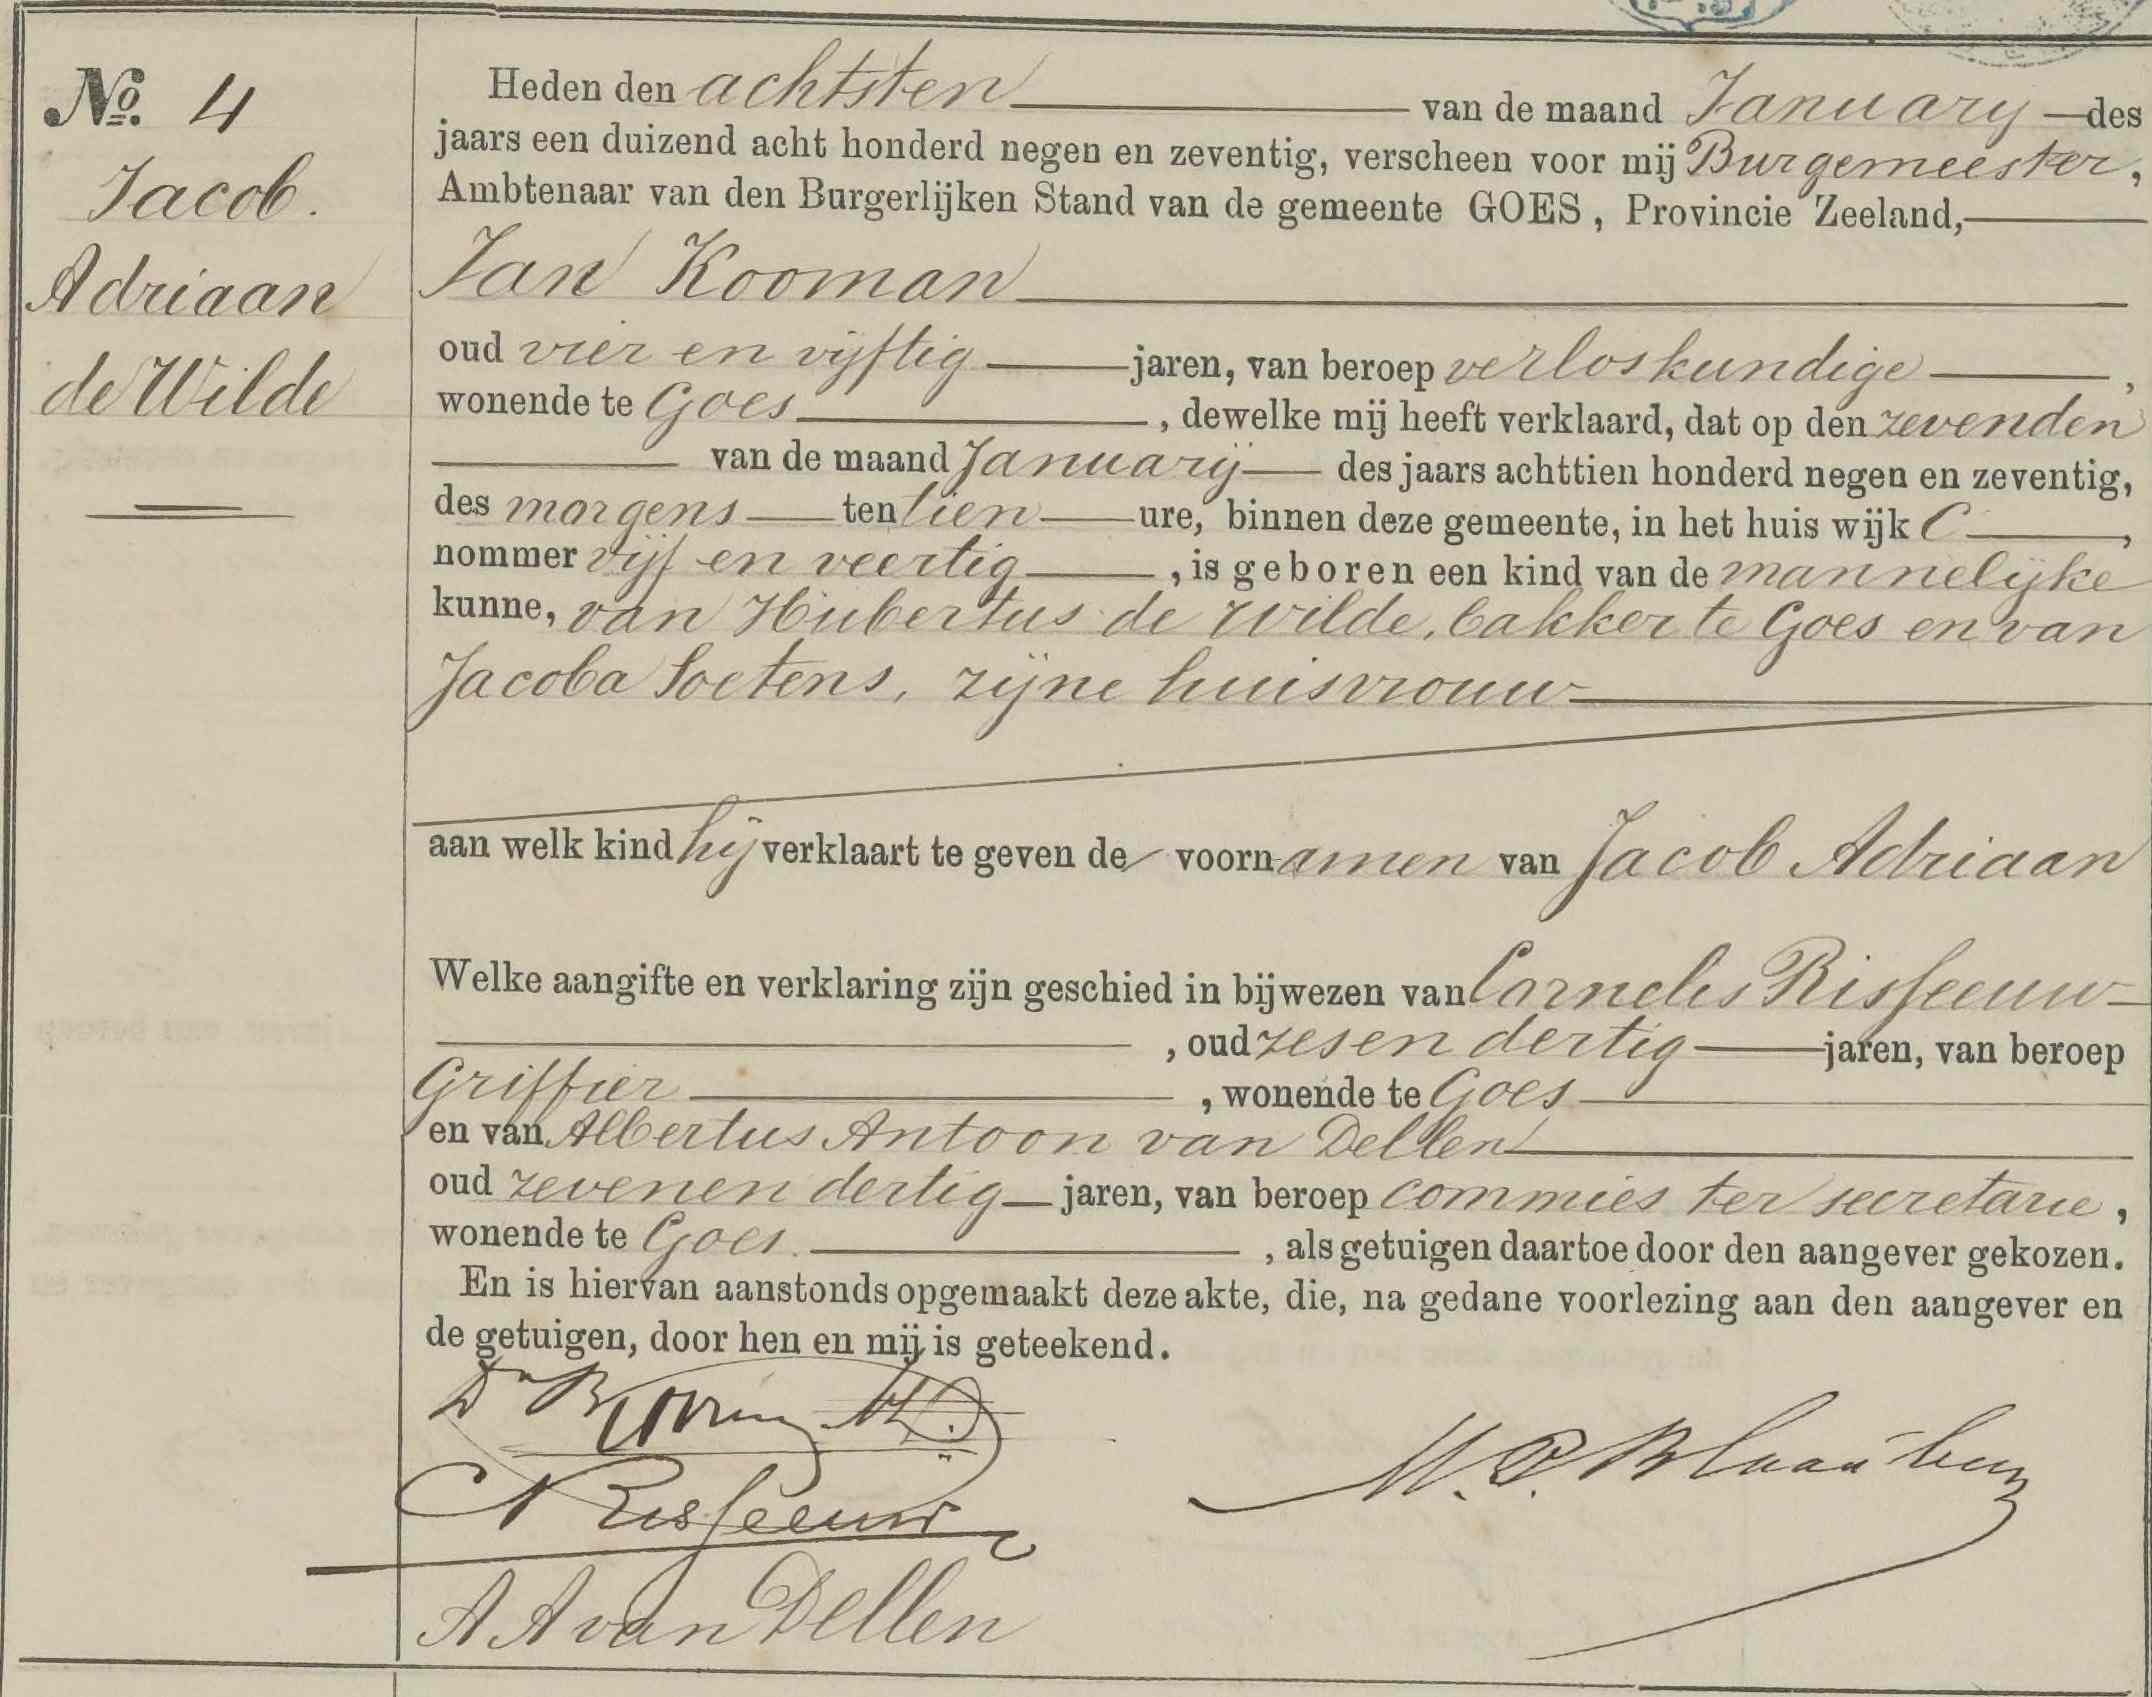 No. 4
Jacob
Adriaan
de Wilde
Heden den achtsten van de maand January des
jaars een duizend acht honderd negen en zeventig, verscheen voor mij Burgemeester,
Ambtenaar van den Burgerlijken Stand van de gemeente GOES, Provincie Zeeland,
Jan Kooman
oud vier en vijftig jaren, van beroep verloskundige,
wonende te Goes, dewelke mij heeft verklaard, dat op den zevenden
van de maand January des jaars achttien honderd negen en zeventig,
des morgens ten tien ure, binnen deze gemeente, in het huis wijk C,
nommer vijf en veertig, is geboren een kind van de mannelijke
kunne, van Hubertus de Wilde, bakker te Goes en van
Jacoba Soetens, zijne huisvrouw
aan welk kind hij verklaart te geven de voornamen van Jacob Adriaan
Welke aangifte en verklaring zijn geschied in bijwezen van Cornelis Risseeuw
, oud zesen dertig jaren, van beroep
Griffier, wonende te Goes
en van Albertus Antoon van Dellen
oud zevenen dertig jaren, van beroep commies ter secretarie,
wonende te Goes, als getuigen daartoe door den aangever gekozen.
En is hiervan aanstonds opgemaakt deze akte, die, na gedane voorlezing aan den aangever en
de getuigen, door hen en mij is geteekend.
M. P. Blaaubeen
C Risseeuw
A A van Dellen